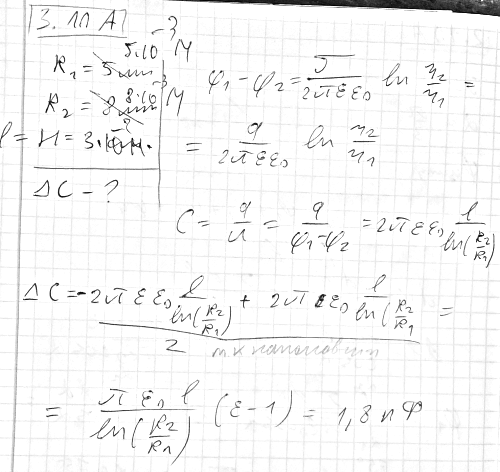 3.11 А
R₁ = 5·10⁻³ М
R₂ = 8·10⁻³ М
l = H = 3·
ΔC - ?
φ₁ - φ₂ = τ / 2πεε₀ ln r₂/r₁ =
= q / 2πεε₀ ln r₂/r₁
C = q/U = q / φ₁-φ₂ = 2πεε₀ l / ln(R₂/R₁)
ΔC = -2πεε₀ l / ln(R₂/R₁) + 2πεε₀ l / ln(R₂/R₁ =
2 т.к наполовину
= πε₀ l / ln(R₂/R₁) (ε-1) = 1,8 пФ